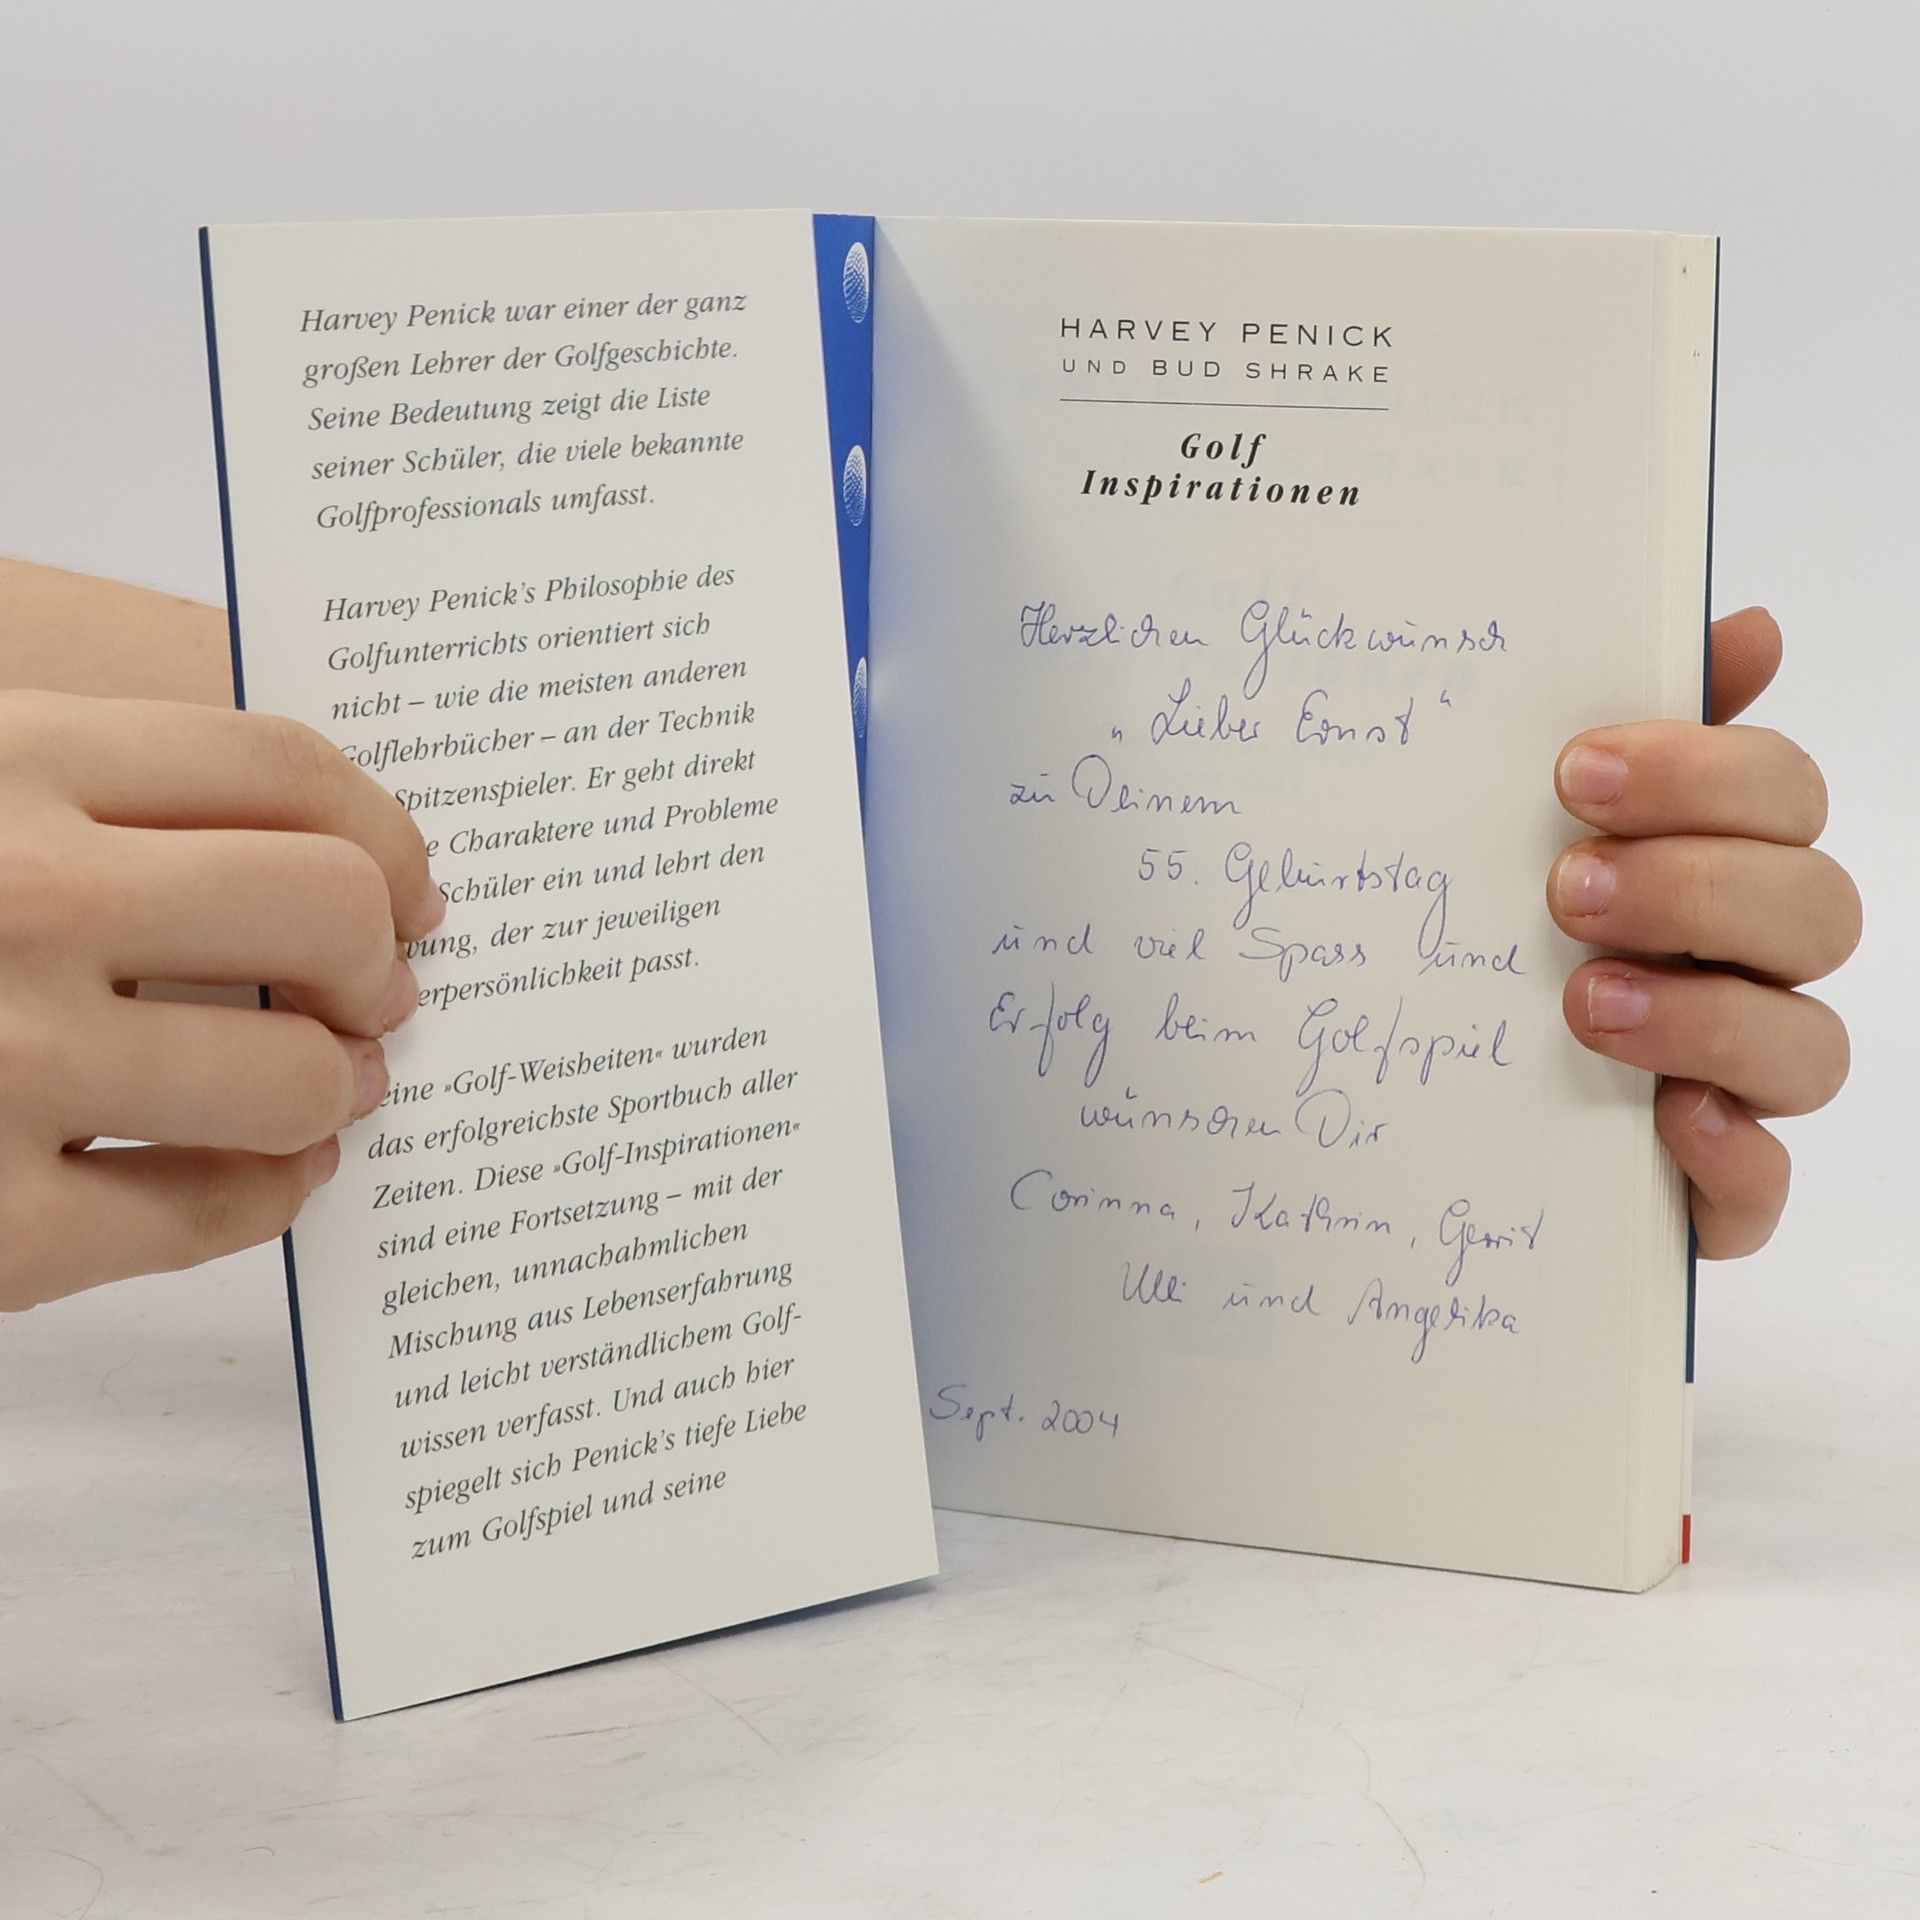 Harvey Penick war einer der ganz
großen Lehrer der Golfgeschichte.
Seine Bedeutung zeigt die Liste
seiner Schüler, die viele bekannte
Golfprofessionals umfasst.
Harvey Penick's Philosophie des
Golfunterrichts orientiert sich
nicht – wie die meisten anderen
Golflehrbücher – an der Technik
Spitzenspieler. Er geht direkt
e Charaktere und Probleme
Schüler ein und lehrt den
ung, der zur jeweiligen
erpersönlichkeit passt.
eine »Golf-Weisheiten« wurden
das erfolgreichste Sportbuch aller
Zeiten. Diese »Golf-Inspirationen«
sind eine Fortsetzung – mit der
gleichen, unnachahmlichen
Mischung aus Lebenserfahrung
und leicht verständlichem Golf-
wissen verfasst. Und auch hier
spiegelt sich Penick's tiefe Liebe
zum Golfspiel und seine
HARVEY PENICK
UND BUD SHRAKE
Golf
Inspirationen
Herzlichen Glückwunsch
„Lieber Ernst“
zu Deinem
55. Geburtstag
und viel Spass und
Erfolg beim Golfspiel
wünschen Dir
Corinna, Kathrin, Gerrit
Ulli und Angelika
Sept. 2004